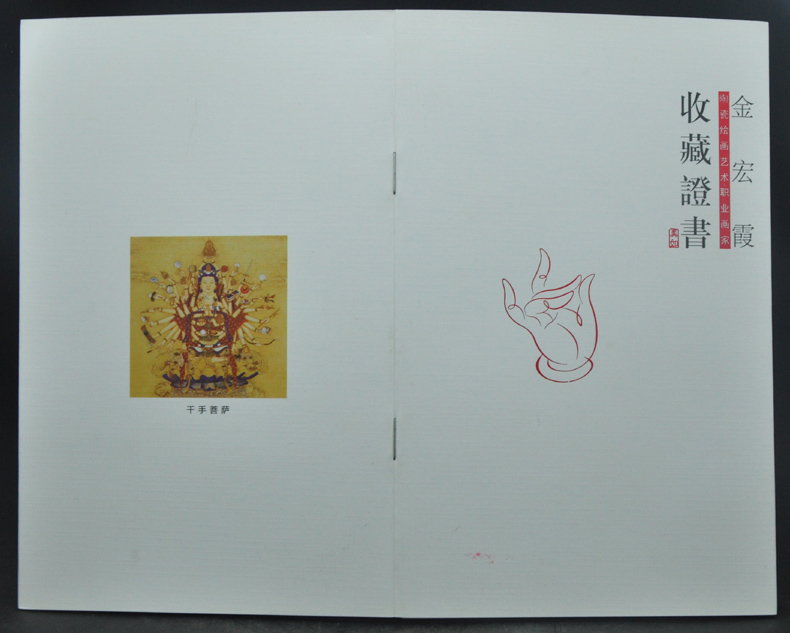 金宏霞
刻瓷绘画艺术职业画家
收藏證書
千手菩萨